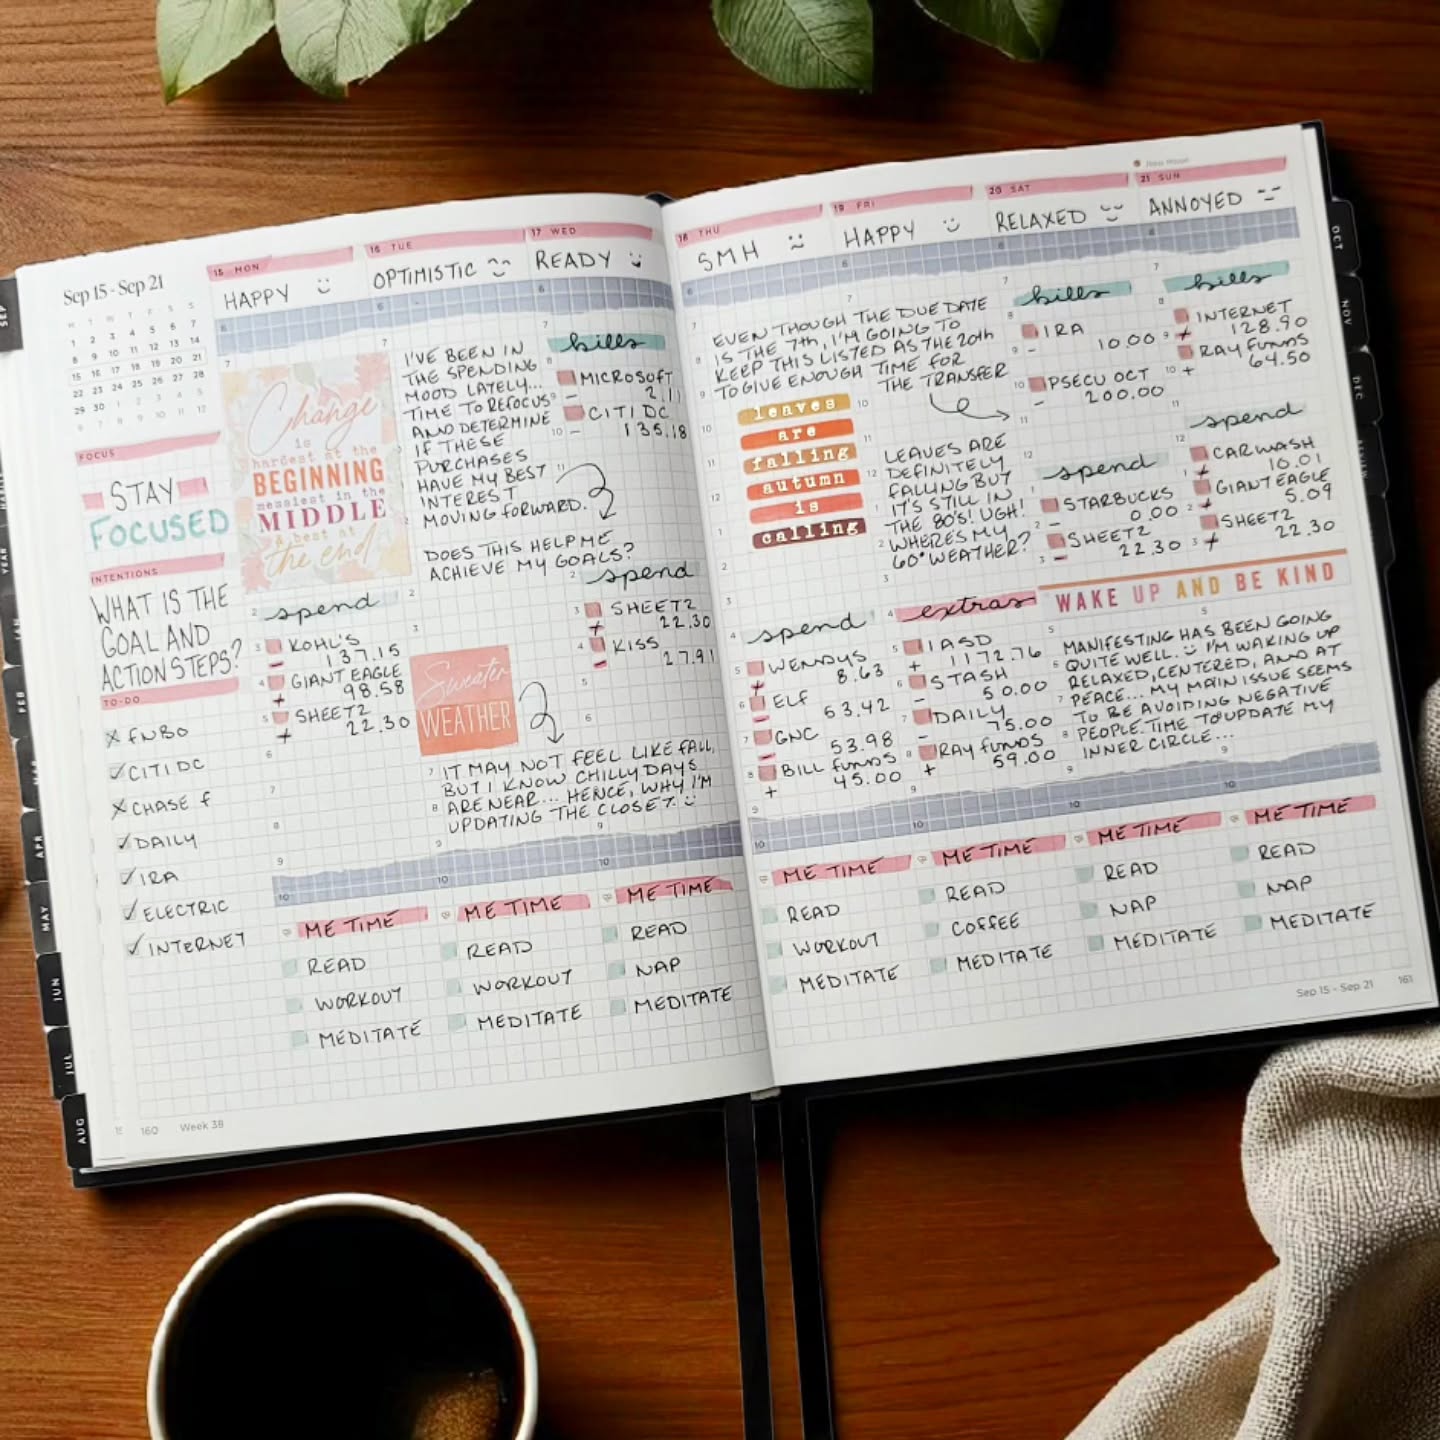 Sep 15 - Sep 21
M T W T F S S
1 2 3 4 5 6 7
8 9 10 11 12 13 14
15 16 17 18 19 20 21
22 23 24 25 26 27 28
29 30 1 2 3 4 5
6 7 8 9 10 11 12
FOCUS
STAY
FOCUSED
INTENTIONS
WHAT IS THE
GOAL AND
ACTION STEPS?
TO-DO
X FNBO
✓ CITI DC
X CHASE F
✓ DAILY
✓ IRA
✓ ELECTRIC
✓ INTERNET
15 MON
HAPPY
6
7
Change
is
hardest at the
BEGINNING
messiest in the
MIDDLE
& best at
the end
2 spend
3 KOHL'S
- 137.15
4 GIANT EAGLE
+ 98.58
5 SHEETZ
+ 22.30
6
7
8
9
10
ME TIME
READ
WORKOUT
MEDITATE
16 TUE
OPTIMISTIC
6
7
I'VE BEEN IN
THE SPENDING
MOOD LATELY...
TIME TO REFOCUS
AND DETERMINE
IF THESE
PURCHASES
HAVE MY BEST
INTEREST
MOVING FORWARD.
DOES THIS HELP ME
ACHIEVE MY GOALS?
2
3
Sweater
WEATHER
7 IT MAY NOT FEEL LIKE FALL,
BUT I KNOW CHILLY DAYS
8 ARE NEAR... HENCE, WHY I'M
UPDATING THE CLOSET.
9
10
ME TIME
READ
WORKOUT
MEDITATE
17 WED
READY
6
7
bills
8
MICROSOFT
9 - 2.11
CITI DC
10 - 135.18
11
2 spend
3 SHEETZ
+ 22.30
4 KISS
- 27.91
5
6
9
10
ME TIME
READ
NAP
MEDITATE
18 THU
SMH
6
7
8
9
EVEN THOUGH THE DUE DATE
IS THE 7th, I'M GOING TO
KEEP THIS LISTED AS THE 20th
TO GIVE ENOUGH TIME FOR
THE TRANSFER
10
11
12
1
leaves
are
falling
autumn
is
calling
2
3
4 spend
5 WENDYS
+ 8.63
6 ELF
- 53.42
7 GNC
- 53.98
8 BILL FUNDS
+ 45.00
9
10
ME TIME
READ
WORKOUT
MEDITATE
19 FRI
HAPPY
6
7
10
11
12
1
2
3
LEAVES ARE
DEFINITELY
FALLING BUT
IT'S STILL IN
THE 80'S! UGH!
WHERE'S MY
60° WEATHER?
4 extras
5 IASD
+ 1172.76
6 STASH
- 50.00
7 DAILY
- 75.00
8 RAY FUNDS
+ 59.00
9
10
ME TIME
READ
COFFEE
MEDITATE
20 SAT
RELAXED
6
7 bills
8 IRA
9 - 10.00
10 PSECU OCT
- 200.00
11
12 spend
1 STARBUCKS
2 - 0.00
SHEETZ
3 - 22.30
WAKE UP AND BE KIND
5
5
6
7
8
MANIFESTING HAS BEEN GOING
QUITE WELL. I'M WAKING UP
RELAXED, CENTERED, AND AT
PEACE... MY MAIN ISSUE SEEMS
TO BE AVOIDING NEGATIVE
PEOPLE. TIME TO UPDATE MY
INNER CIRCLE...
9
10
ME TIME
READ
NAP
MEDITATE
21 SUN
ANNOYED
6
7 bills
8 INTERNET
9 + 128.90
RAY FUNDS
10 + 64.50
11 spend
12 CAR WASH
1 + 10.01
GIANT EAGLE
2 + 5.09
SHEETZ
3 + 22.30
9
10
ME TIME
READ
NAP
MEDITATE
160 Week 38
Sep 15 - Sep 21 161
SEP
YEAR
JAN
FEB
MAR
APR
MAY
JUN
JUL
AUG
OCT
NOV
DEC